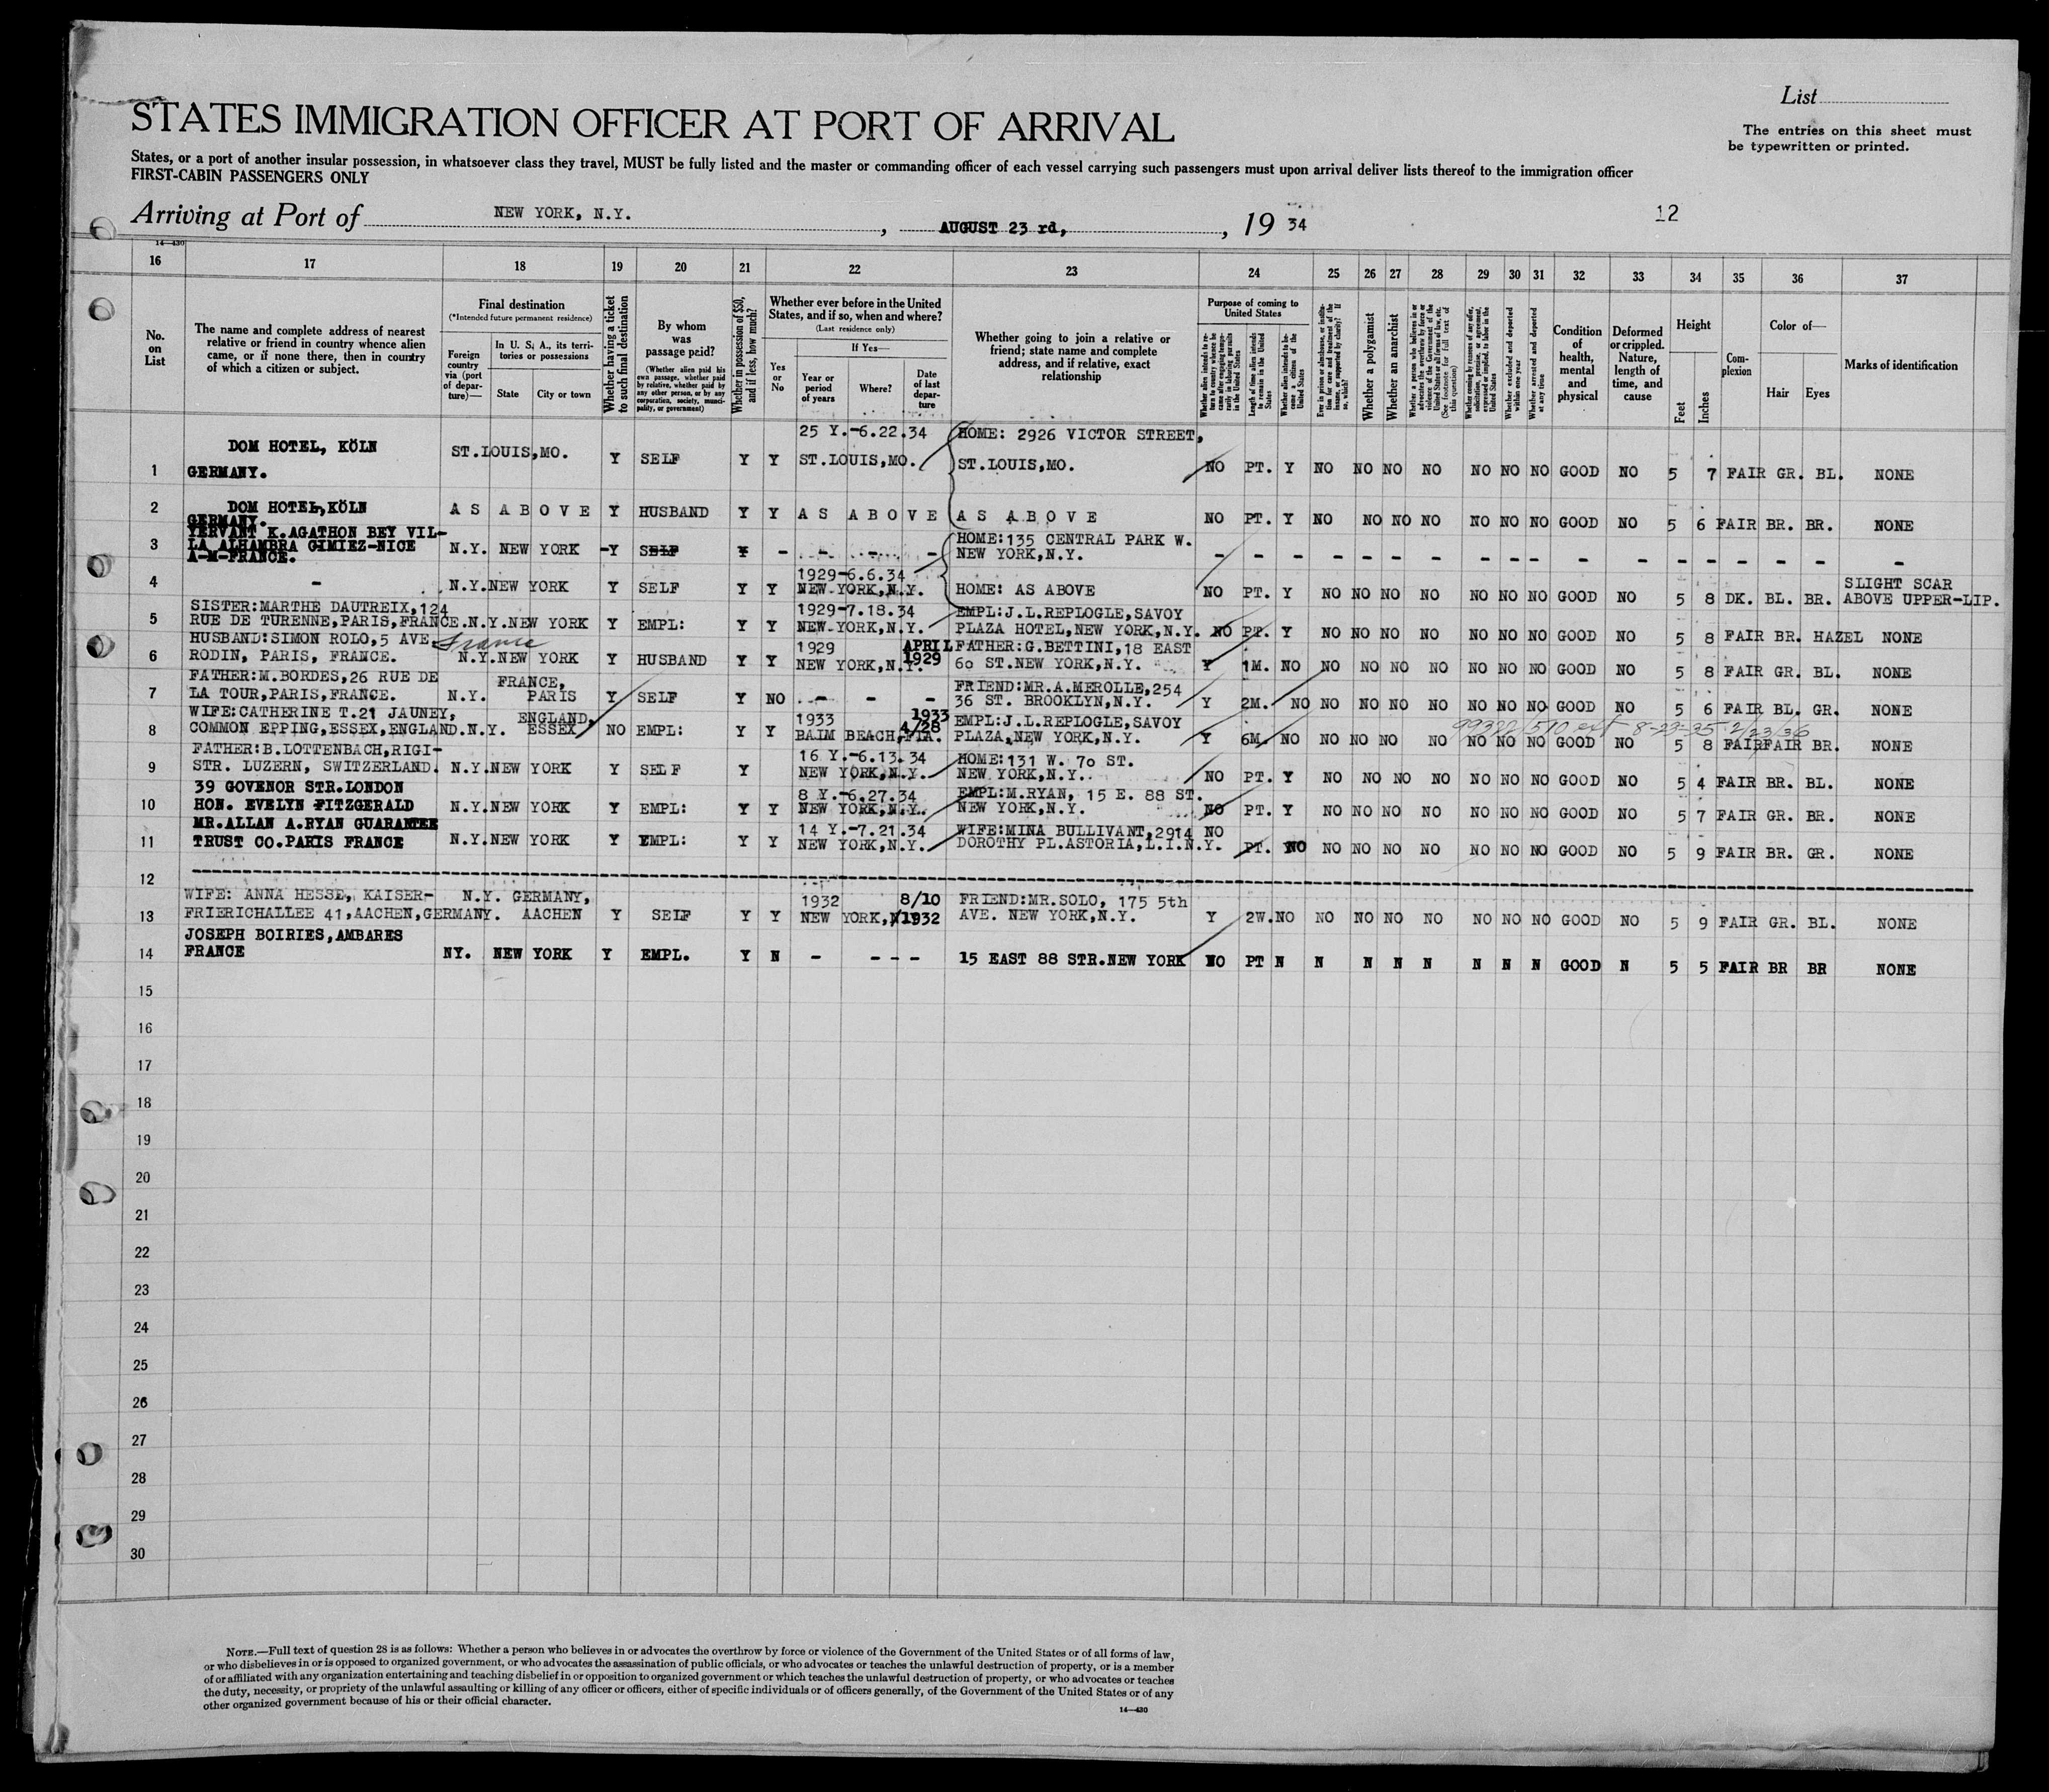 List
STATES IMMIGRATION OFFICER AT PORT OF ARRIVAL
The entries on this sheet must
be typewritten or printed.
States, or a port of another insular possession, in whatsoever class they travel, MUST be fully listed and the master or commanding officer of each vessel carrying such passengers must upon arrival deliver lists thereof to the immigration officer
FIRST-CABIN PASSENGERS ONLY
Arriving at Port of NEW YORK, N.Y., AUGUST 23 rd, 19 34
12
14—430
16 17 18 19 20 21 22 23 24 25 26 27 28 29 30 31 32 33 34 35 36 37
No.
on
List
The name and complete address of nearest
relative or friend in country whence alien
came, or if none there, then in country
of which a citizen or subject.
Final destination
(*Intended future permanent residence)
Foreign
country
via (port
of depar-
ture)—
In U. S. A., its terri-
tories or possessions
State
City or town
Whether having a ticket
to such final destination
By whom
was
passage paid?
(Whether alien paid his
own passage, whether paid
by relative, whether paid by
any other person, or by any
corporation, society, munici-
pality, or government)
Whether in possession of $50,
and if less, how much?
Whether ever before in the United
States, and if so, when and where?
(Last residence only)
Yes
or
No
If Yes—
Year or
period
of years
Where?
Date
of last
depar-
ture
Whether going to join a relative or
friend; state name and complete
address, and if relative, exact
relationship
Purpose of coming to
United States
Length of time alien intends
to remain in the United
States
Whether alien intends to be-
come a citizen of the
United States
Whether a polygamist
Whether an anarchist
Whether excluded and deported
within one year
Whether arrested and deported
at any time
Condition
of
health,
mental
and
physical
Deformed
or crippled.
Nature,
length of
time, and
cause
Height
Feet
Inches
Com-
plexion
Color of—
Hair
Eyes
Marks of identification
1 DOM HOTEL, KÖLN
GERMANY. ST.LOUIS,MO. Y SELF Y Y 25 Y.-6.22.34
ST.LOUIS,MO. HOME: 2926 VICTOR STREET,
ST.LOUIS,MO. NO PT. Y NO NO NO NO NO NO NO GOOD NO 5 7 FAIR GR. BL. NONE
2 DOM HOTEL,KÖLN
GERMANY. AS ABOVE Y HUSBAND Y Y AS ABOVE AS ABOVE NO PT. Y NO NO NO NO NO NO NO GOOD NO 5 6 FAIR BR. BR. NONE
3 YERVANT K.AGATHON BEY VIL-
LA ALHAMBRA CIMIEZ-NICE
A-M-FRANCE. N.Y. NEW YORK -Y SELF Y - - - - HOME:135 CENTRAL PARK W.
NEW YORK,N.Y. - - - - - - - - - - - - - - - - - -
4 - N.Y.NEW YORK Y SELF Y Y 1929-6.6.34
NEW-YORK,N.Y. HOME: AS ABOVE NO PT. Y NO NO NO NO NO NO NO GOOD NO 5 8 DK. BL. BR. SLIGHT SCAR
ABOVE UPPER-LIP.
5 SISTER:MARTHE DAUTREIX,124
RUE DE TURENNE,PARIS,FRANCE.N.Y.NEW YORK Y EMPL: Y Y 1929-7.18.34
NEW-YORK,N.Y. EMPL:J.L.REPLOGLE,SAVOY
PLAZA HOTEL,NEW YORK,N.Y. NO PT. Y NO NO NO NO NO NO NO GOOD NO 5 8 FAIR BR. HAZEL NONE
6 HUSBAND:SIMON ROLO,5 AVE
RODIN, PARIS, FRANCE. France N.Y.NEW YORK Y HUSBAND Y Y 1929 APRIL
NEW YORK,N.Y. 1929 FATHER:G.BETTINI,18 EAST
60 ST.NEW YORK,N.Y. Y 1M. NO NO NO NO NO NO NO NO GOOD NO 5 8 FAIR GR. BL. NONE
7 FATHER:M.BORDES,26 RUE DE
LA TOUR,PARIS,FRANCE. N.Y. FRANCE,
PARIS Y SELF Y NO - - - FRIEND:MR.A.MEROLLE,254
36 ST. BROOKLYN,N.Y. Y 2M. NO NO NO NO NO NO NO NO GOOD NO 5 6 FAIR BL. GR. NONE
8 WIFE:CATHERINE T.21 JAUNEY,
COMMON EPPING,ESSEX,ENGLAND.N.Y. ENGLAND,
ESSEX NO EMPL: Y Y 1933 1933
4/28
BAIM BEACH,FLA. EMPL:J.L.REPLOGLE,SAVOY
PLAZA,NEW YORK,N.Y. Y 6M. NO NO NO NO NO NO NO NO GOOD NO 5 8 FAIR FAIR BR. NONE
8-23-35 2/23/36
9 FATHER:B.LOTTENBACH,RIGI-
STR. LUZERN, SWITZERLAND. N.Y.NEW YORK Y SELF Y 16 Y.-6.13.34
NEW YORK,N.Y. HOME:131 W. 70 ST.
NEW YORK,N.Y. NO PT. Y NO NO NO NO NO NO NO GOOD NO 5 4 FAIR BR. BL. NONE
10 39 GOVENOR STR.LONDON
HON. EVELYN FITZGERALD N.Y.NEW YORK Y EMPL: Y Y 8 Y.-6.27.34
NEW YORK,N.Y. EMPL:M.RYAN, 15 E. 88 ST.
NEW YORK,N.Y. NO PT. Y NO NO NO NO NO NO NO GOOD NO 5 7 FAIR GR. BR. NONE
11 MR.ALLAN A.RYAN GUARANTEE
TRUST CO.PARIS FRANCE N.Y.NEW YORK Y EMPL: Y Y 14 Y.-7.21.34
NEW YORK,N.Y. WIFE:MINA BULLIVANT,2914
DOROTHY PL.ASTORIA,L.I.N.Y. NO PT. NO NO NO NO NO NO NO NO GOOD NO 5 9 FAIR BR. GR. NONE
12
13 WIFE: ANNA HESSE, KAISER-
FRIERICHALLEE 41,AACHEN,GERMANY. N.Y. GERMANY,
AACHEN Y SELF Y Y 1932 8/10
NEW YORK, 1932 FRIEND:MR.SOLO, 175 5th
AVE. NEW YORK,N.Y. Y 2W. NO NO NO NO NO NO NO NO GOOD NO 5 9 FAIR GR. BL. NONE
14 JOSEPH BOIRIES,AMBARES
FRANCE NY. NEW YORK Y EMPL. Y N - - - - 15 EAST 88 STR.NEW YORK NO PT N N N N N N N N GOOD N 5 5 FAIR BR BR NONE
15
16
17
18
19
20
21
22
23
24
25
26
27
28
29
30
NOTE.—Full text of question 28 is as follows: Whether a person who believes in or advocates the overthrow by force or violence of the Government of the United States or of all forms of law,
or who disbelieves in or is opposed to organized government, or who advocates the assassination of public officials, or who advocates or teaches the unlawful destruction of property, or is a member
of or affiliated with any organization entertaining and teaching disbelief in or opposition to organized government or which teaches the unlawful destruction of property, or who advocates or teaches
the duty, necessity, or propriety of the unlawful assaulting or killing of any officer or officers, either of specific individuals or of officers generally, of the Government of the United States or of any
other organized government because of his or their official character.
14—430